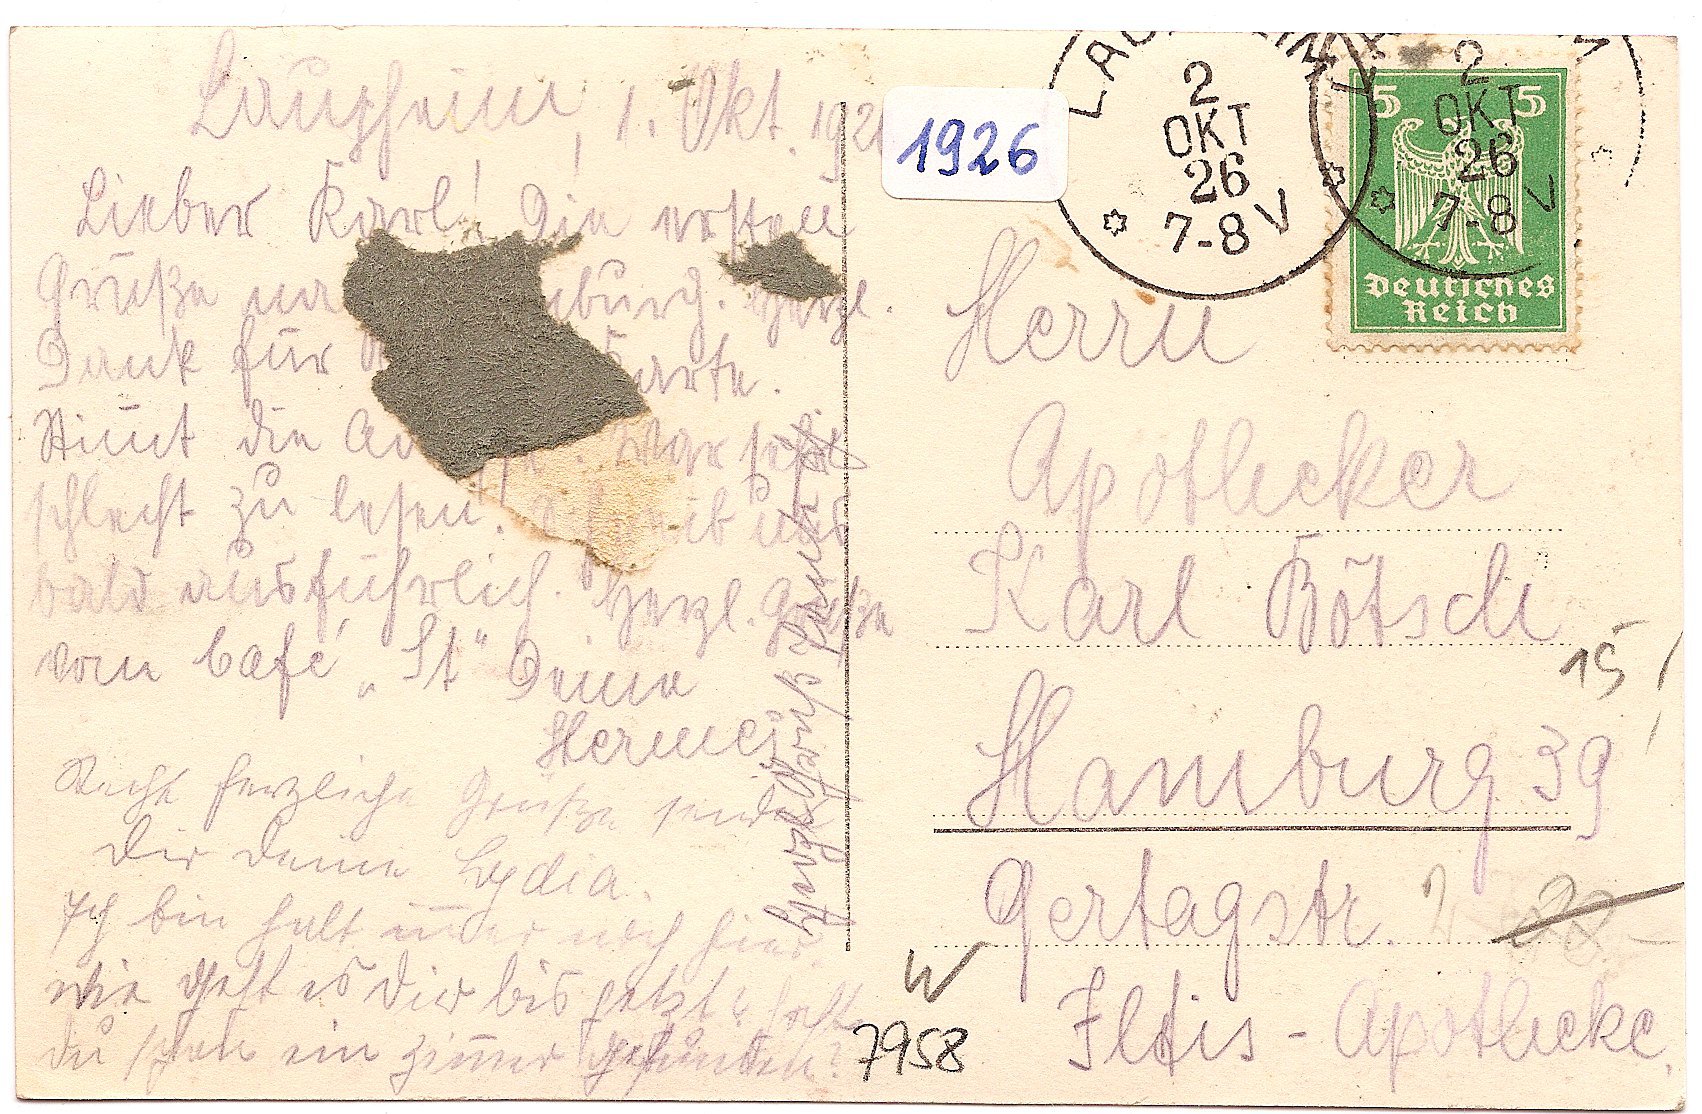 Laupheim, 1. Okt. 192
Lieber Karl! Die ersten
Grüße na nburg. Herzl.
Dank für Karte.
Stimmt die War sehr
schlecht zu lesen. uns
bald ausführlich. Herzl. Grüße
vom Café „St" Deine
Recht herzliche Grüße sendet
Dir Deine Lydia.
Ich bin halt immer noch hier.
Wie geht es Dir bis jetzt, hast
du schon ein Zimmer gefunden?
1926
LAUPHEIM
2
OKT
26
7-8 V
2
OKT
26
7-8 V
5 5
Deutsches
Reich
Herrn
Apotheker
Karl Bötsch
15
Hamburg 39
Gertigstr.
Iltis-Apotheke.
W
7958